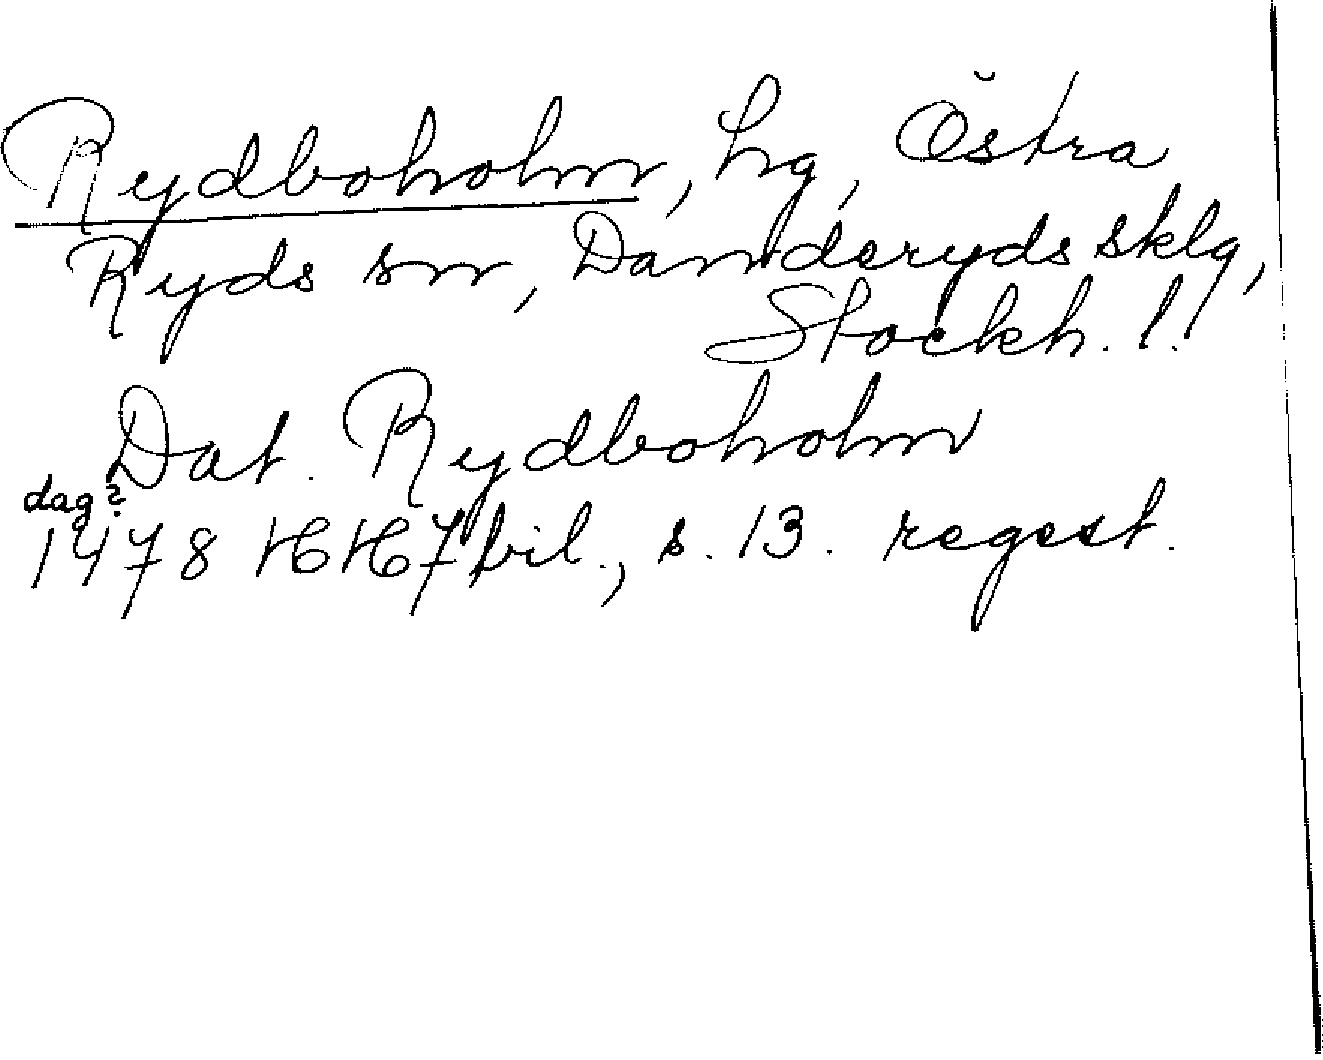 Rydboholm, hg, Östra
Ryds sn, Danderyds sklg,
Stockh. l.
Dat. Rydboholm
dag?
1478 HH 7 bil., s. 13. regest.